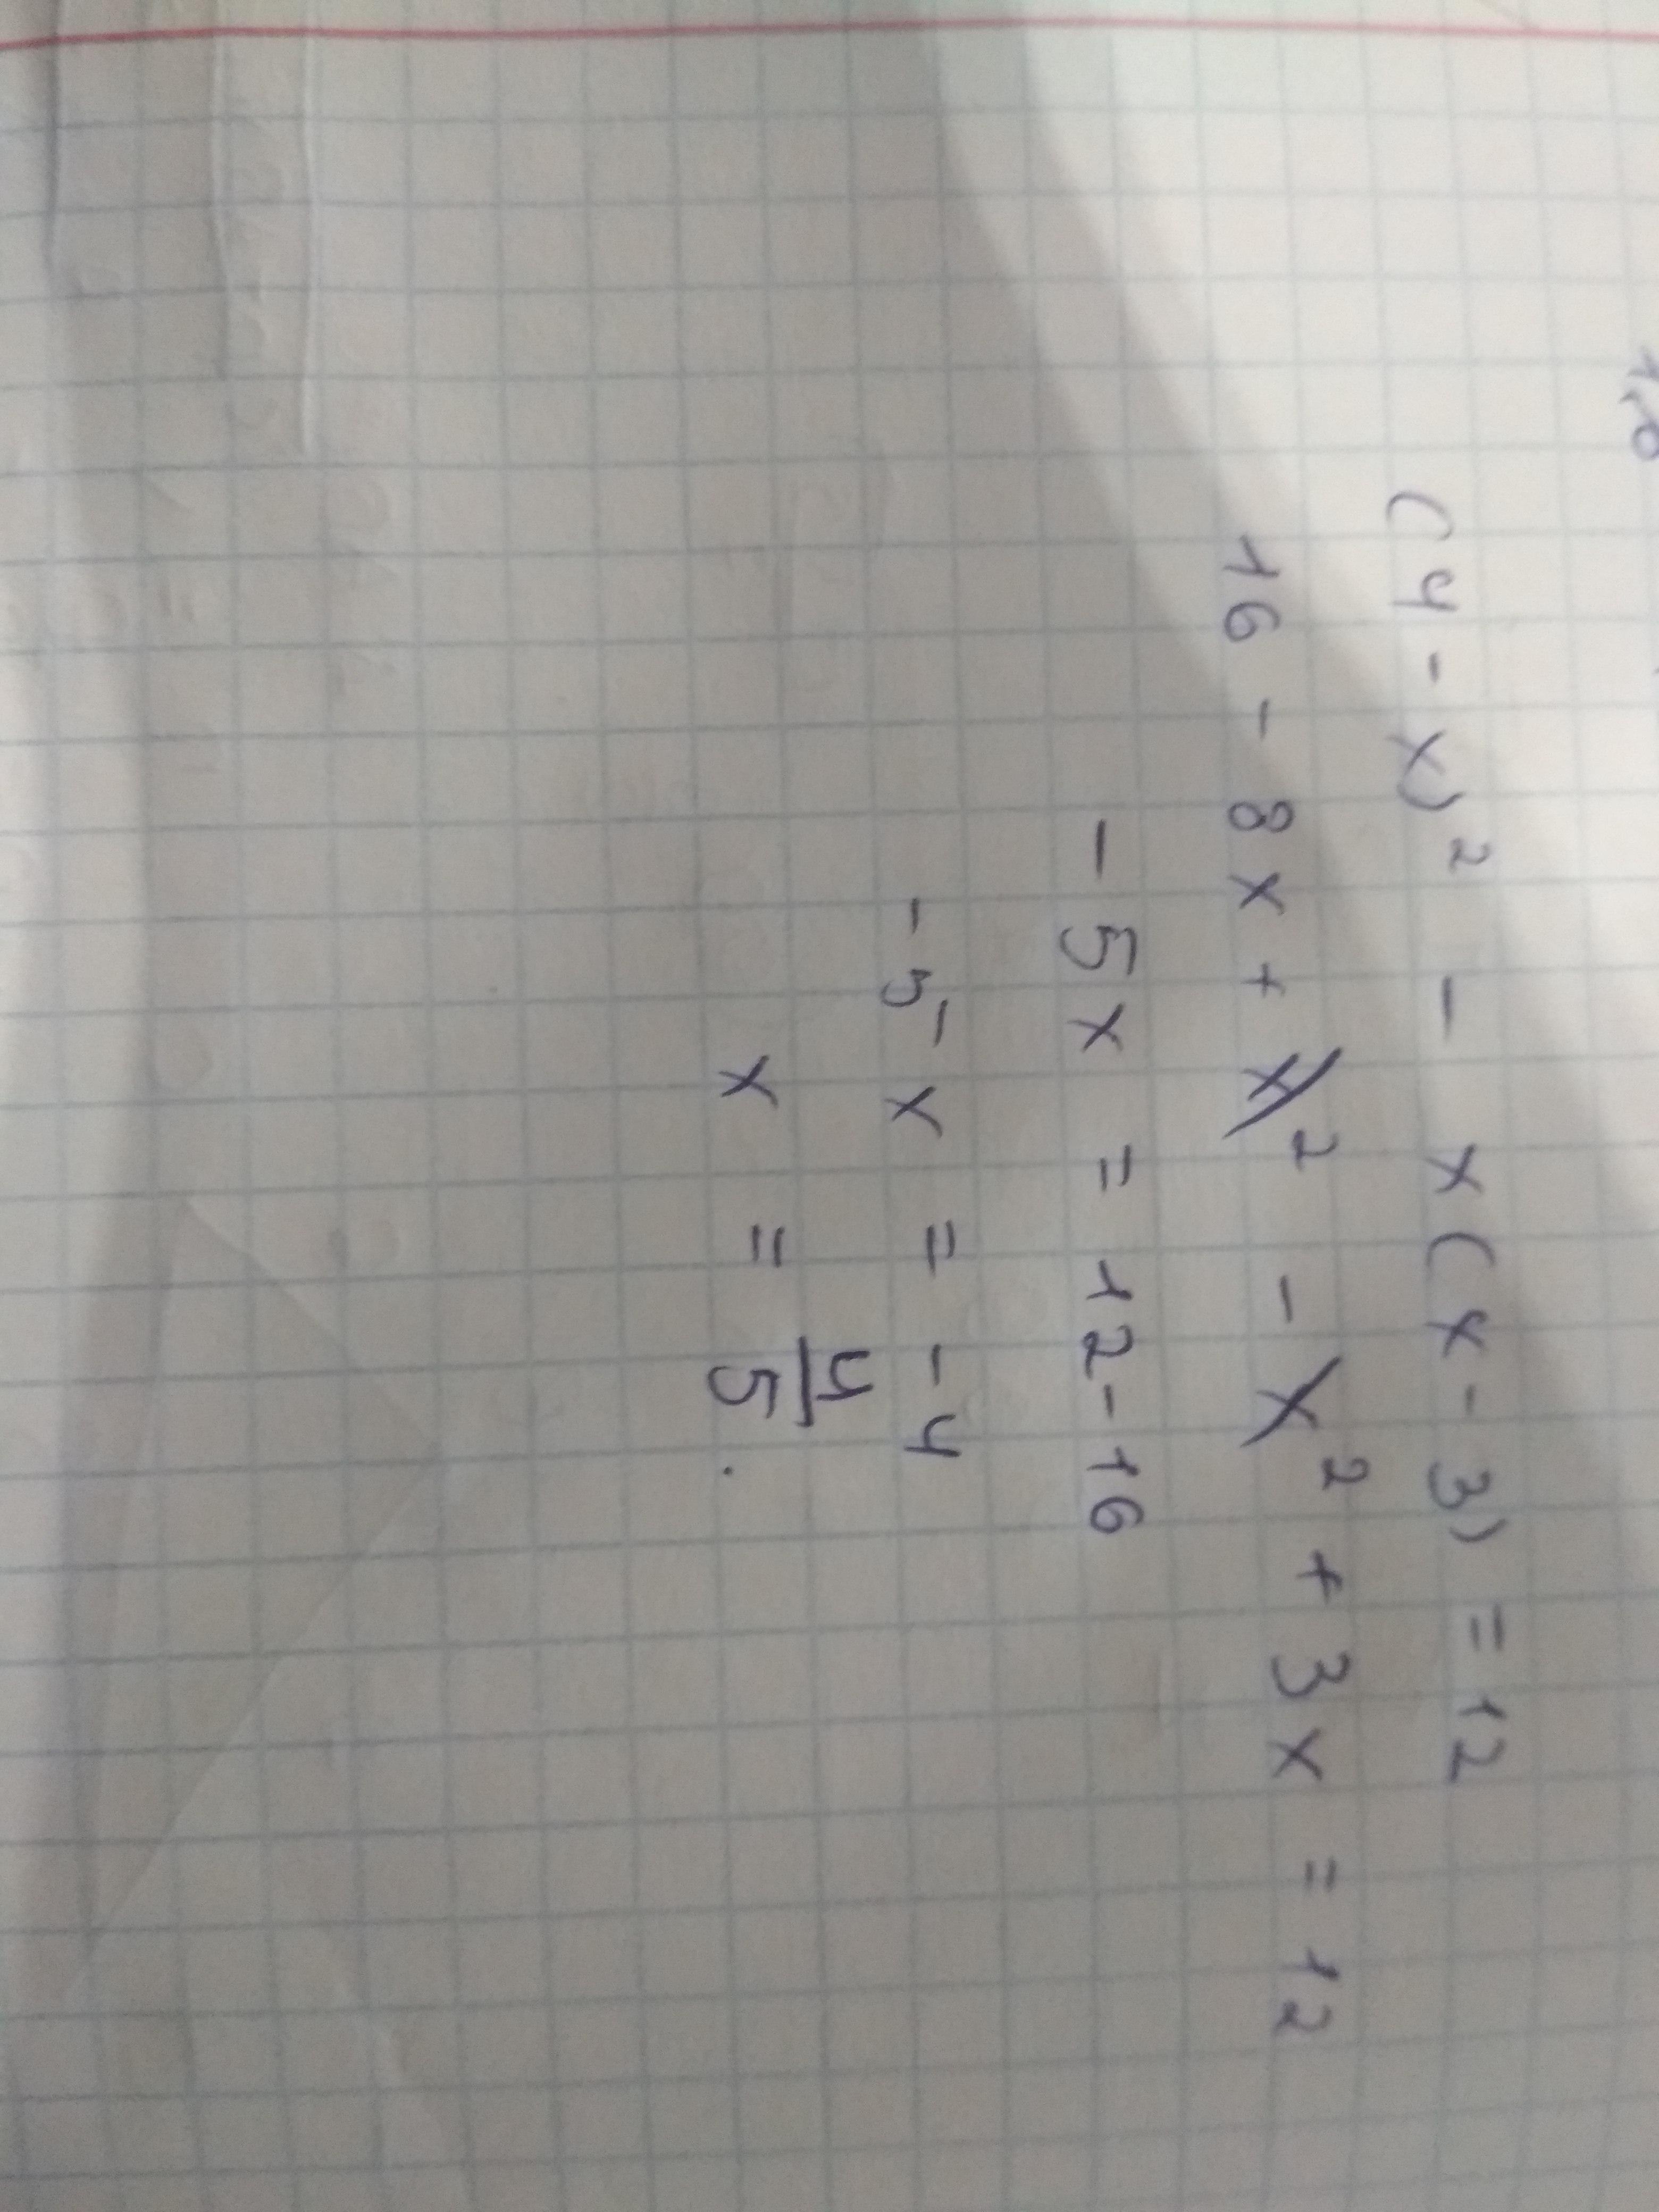 (4-x)² - x(x-3) = 12
16 - 8x + x² - x² + 3x = 12
-5x = 12-16
-5x = -4
x = 4/5.